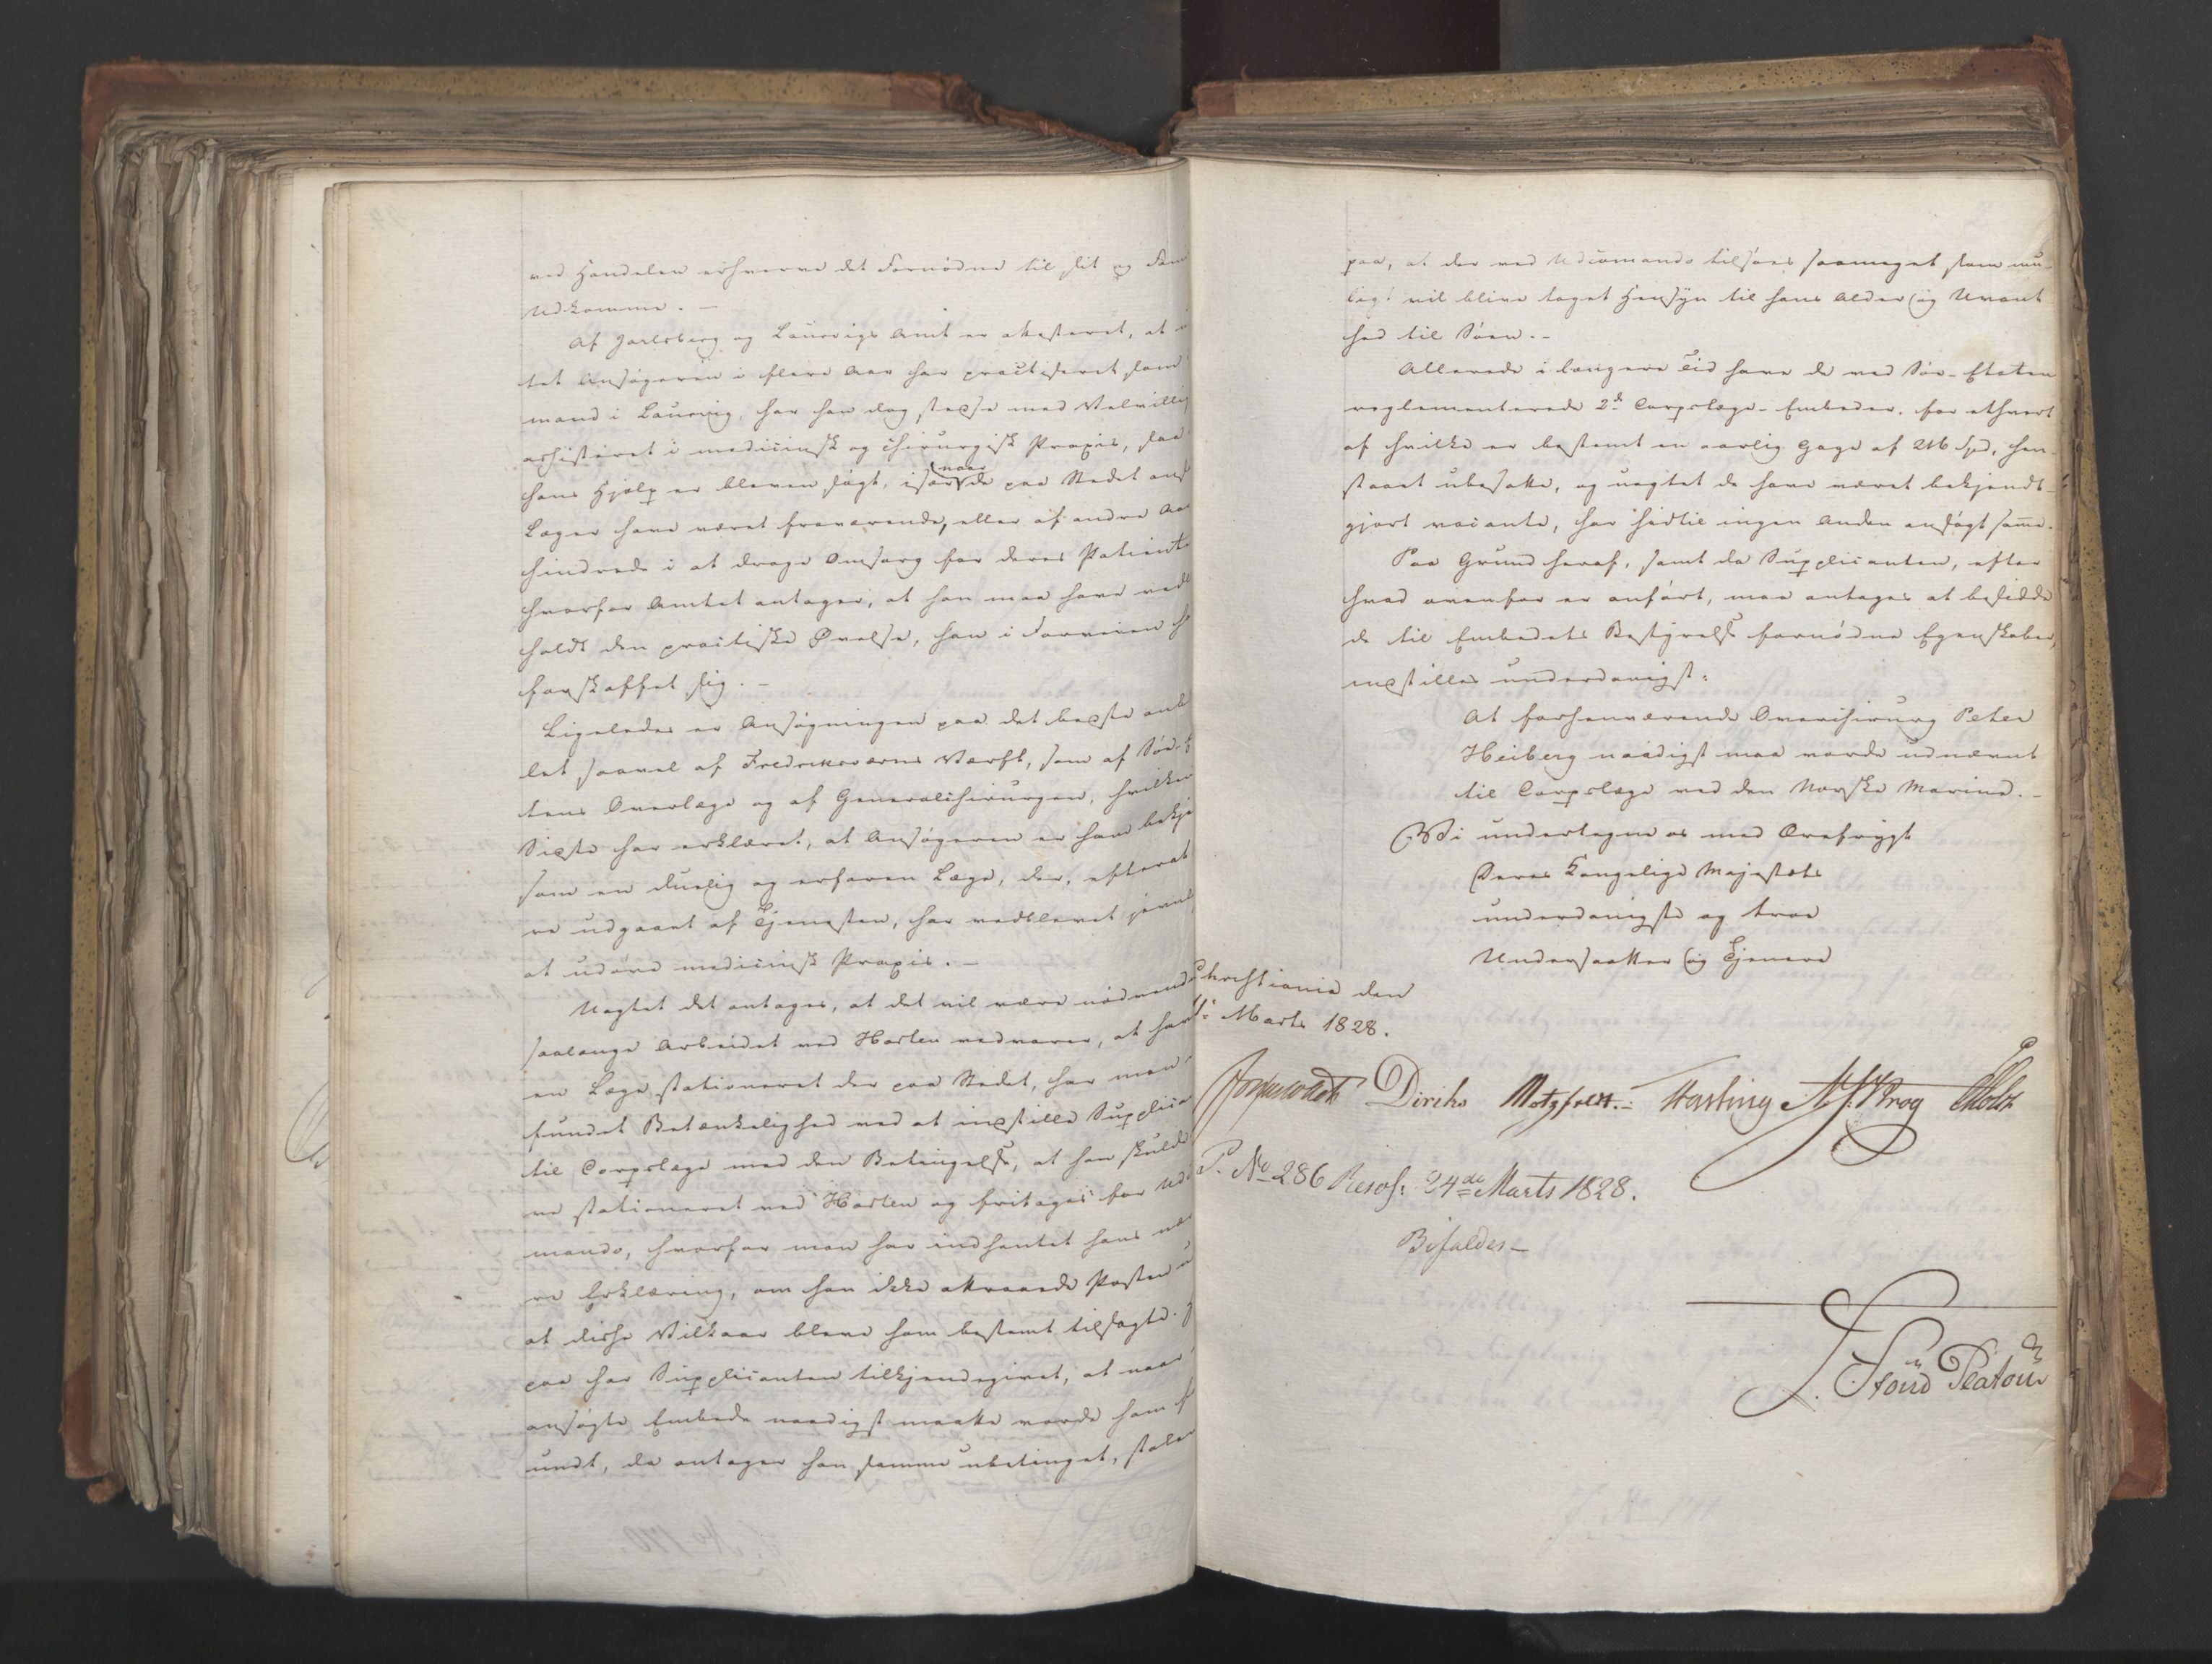 ved Handelen erhverve det Fornødne til sit og Fam
Udkomme. –
Af Jarlsberg og Laurvigs Amt er attesteret, at
tet Ansøgeren i flere Aar har practiseret som
mand i Laurvig, har han dog stedse med Velvillig
assisteret i medicinsk og chirurgisk Praxis, saa
hans Hjælp er bleven søgt, især naar de paa Stedet ans
Læger have været fraværende, eller af andre Aa
hindrede i at drage Omsorg for deres Patient
hvorfor Amtet antager, at han maa have ved
holdt den practiske Øvelse, han i Forveien h
forskaffet sig. –
Ligeledes er Ansøgningen paa det bedste anb
let saavel af Fredriksværns Værft, som af Søe-E
tens Overlæge og af Generalchirurgen, hvilken
Sidste har erklæret, at Ansøgeren er ham bekje
som en duelig og erfaren Læge, der, efterat
re udgaaet af Tjenesten, har vedblevet jevnl
at udøve medicinsk Praxis. –
Uagtet det antages, at det vil være nødvend
saalænge Arbeidet ved Horten vedvarer, at hav
en Læge stationeret der paa Stedet, har man
fundet Betænkelighed ved at indstille Supplica
til Corpslæge med den Betingelse, at han skulde
re stationeret ved Horten og fritages for Ud
mando, hvorfor man har indhentet hans næ
re Erklæring, om han ikke attraaede Posten u
at disse Vilkaar bleve ham bestemt tilsagte.
paa har Supplicanten tilkjendegivet, at naar
ansøgte Embede naadigst maatte vorde ham f
undt, da antager han samme ubetinget, stolen
paa, at der ved Udcomando tilsøes saameget som mu-
ligt vil blive taget Hensyn til hans Alder og Uvant
hed til Søen. –
Allerede i længere Tid have de ved Søe-Etaten
reglementerede 2de Corpslæge-Embeder, for ethvert
af hvilke er bestemt en aarlig Gage af 216 Spd, hen-
staaet ubesatte, og uagtet de have været bekjendt-
gjort vacante, har hidtil ingen Anden ansøgt samme.
Paa Grund heraf, samt da Supplicanten, efter
hvad ovenfor er anført, maa antages at besidde
de til Embedets Bestyrelse fornødne Egenskaber,
indstilles underdanigst:
At forhenværende Overchirurg Peter
Heiberg naadigst maa vorde udnævnt
til Corpslæge ved den Norske Marine. –
Vi undertegne os med Ærefrygt
Deres Kongelige Majestæts
underdanigste og troe
Undersaatter og Tjenere
Christiania den
Marts 1828.
Diriks Motzfeldt. Hasting Krog Holst
P. No 286 Resol: 24de Marts 1828.
Bifaldes –
Platou